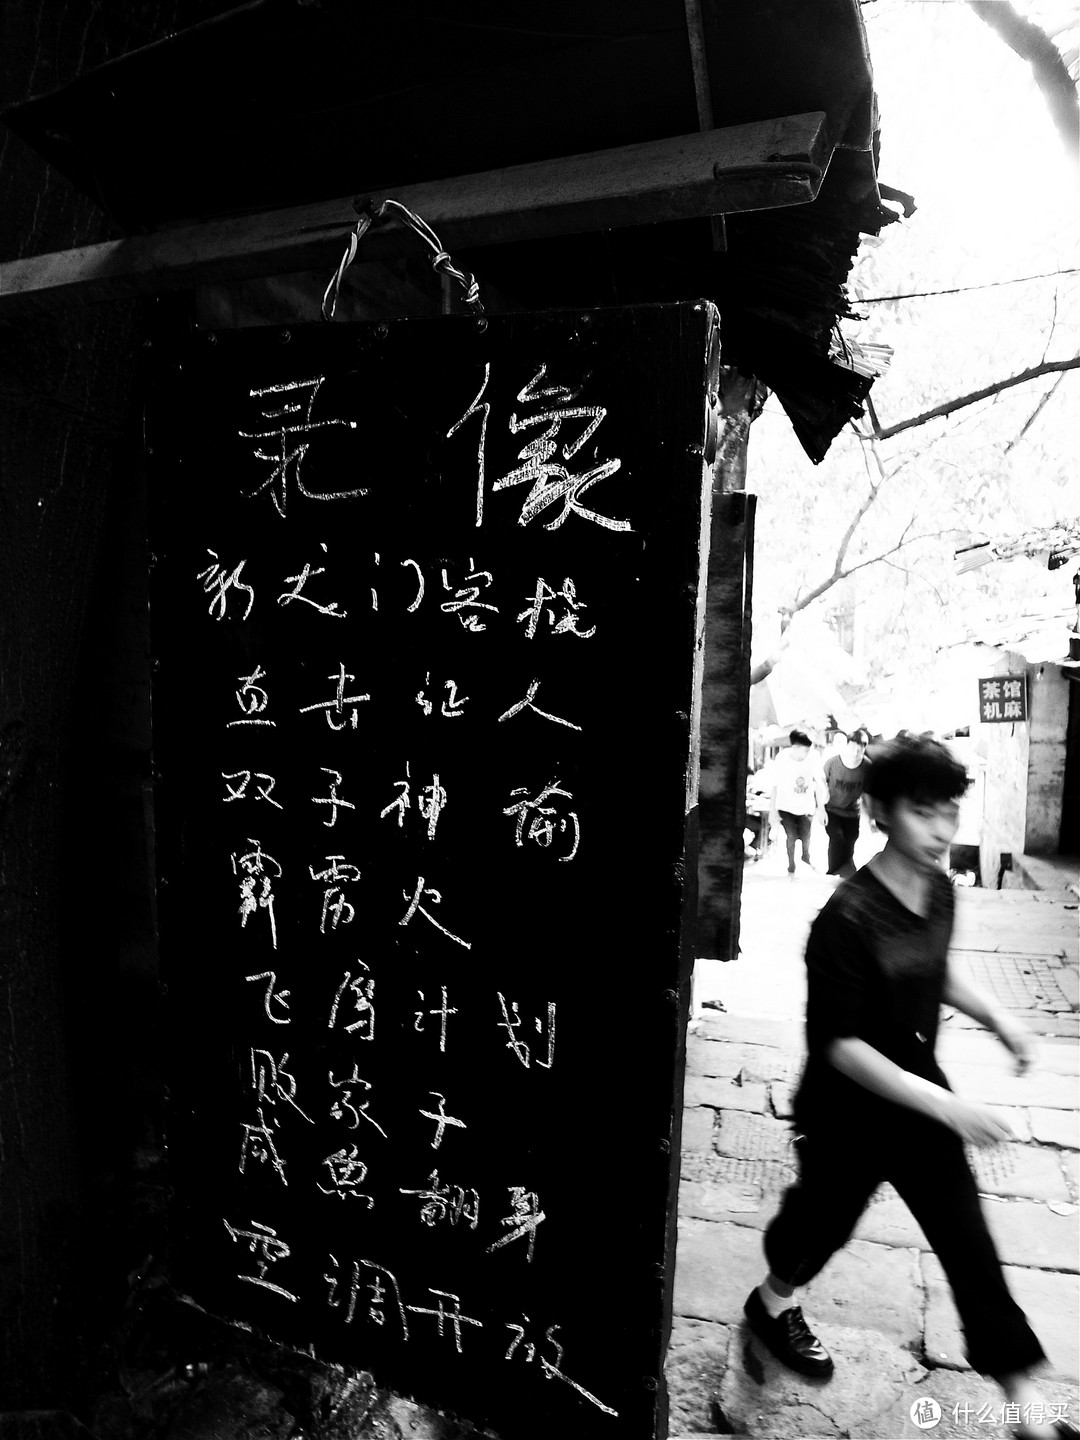 录像
新龙门客栈
直击证人
双子神谕
霹雳火
飞鹰计划
败家子
咸魚翻身
空调开放
茶馆
机麻
值 什么值得买